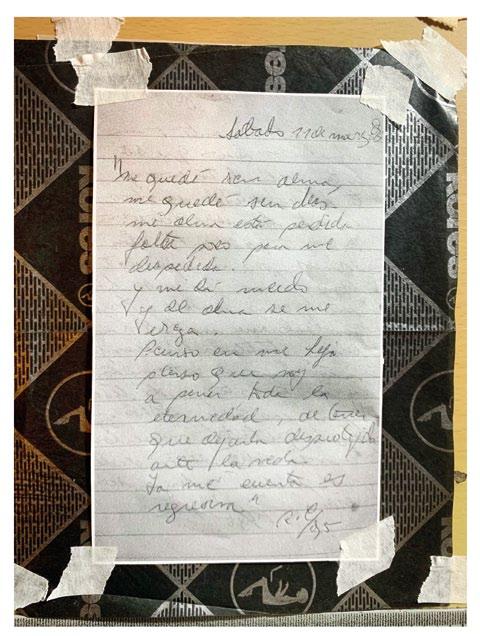 Sabado 11 de marzo
"me quedé sin alma,
me quedé sin dios
mi alma está perdida
falta poco para mi
despedida.
y me da miedo
y el alma se me
Pienso en mi hija
pienso que voy
a penar toda la
eternidad, de tener
que dejarla desprotegida
ante la vida
La me cuenta es
regresiva"
R.C/95